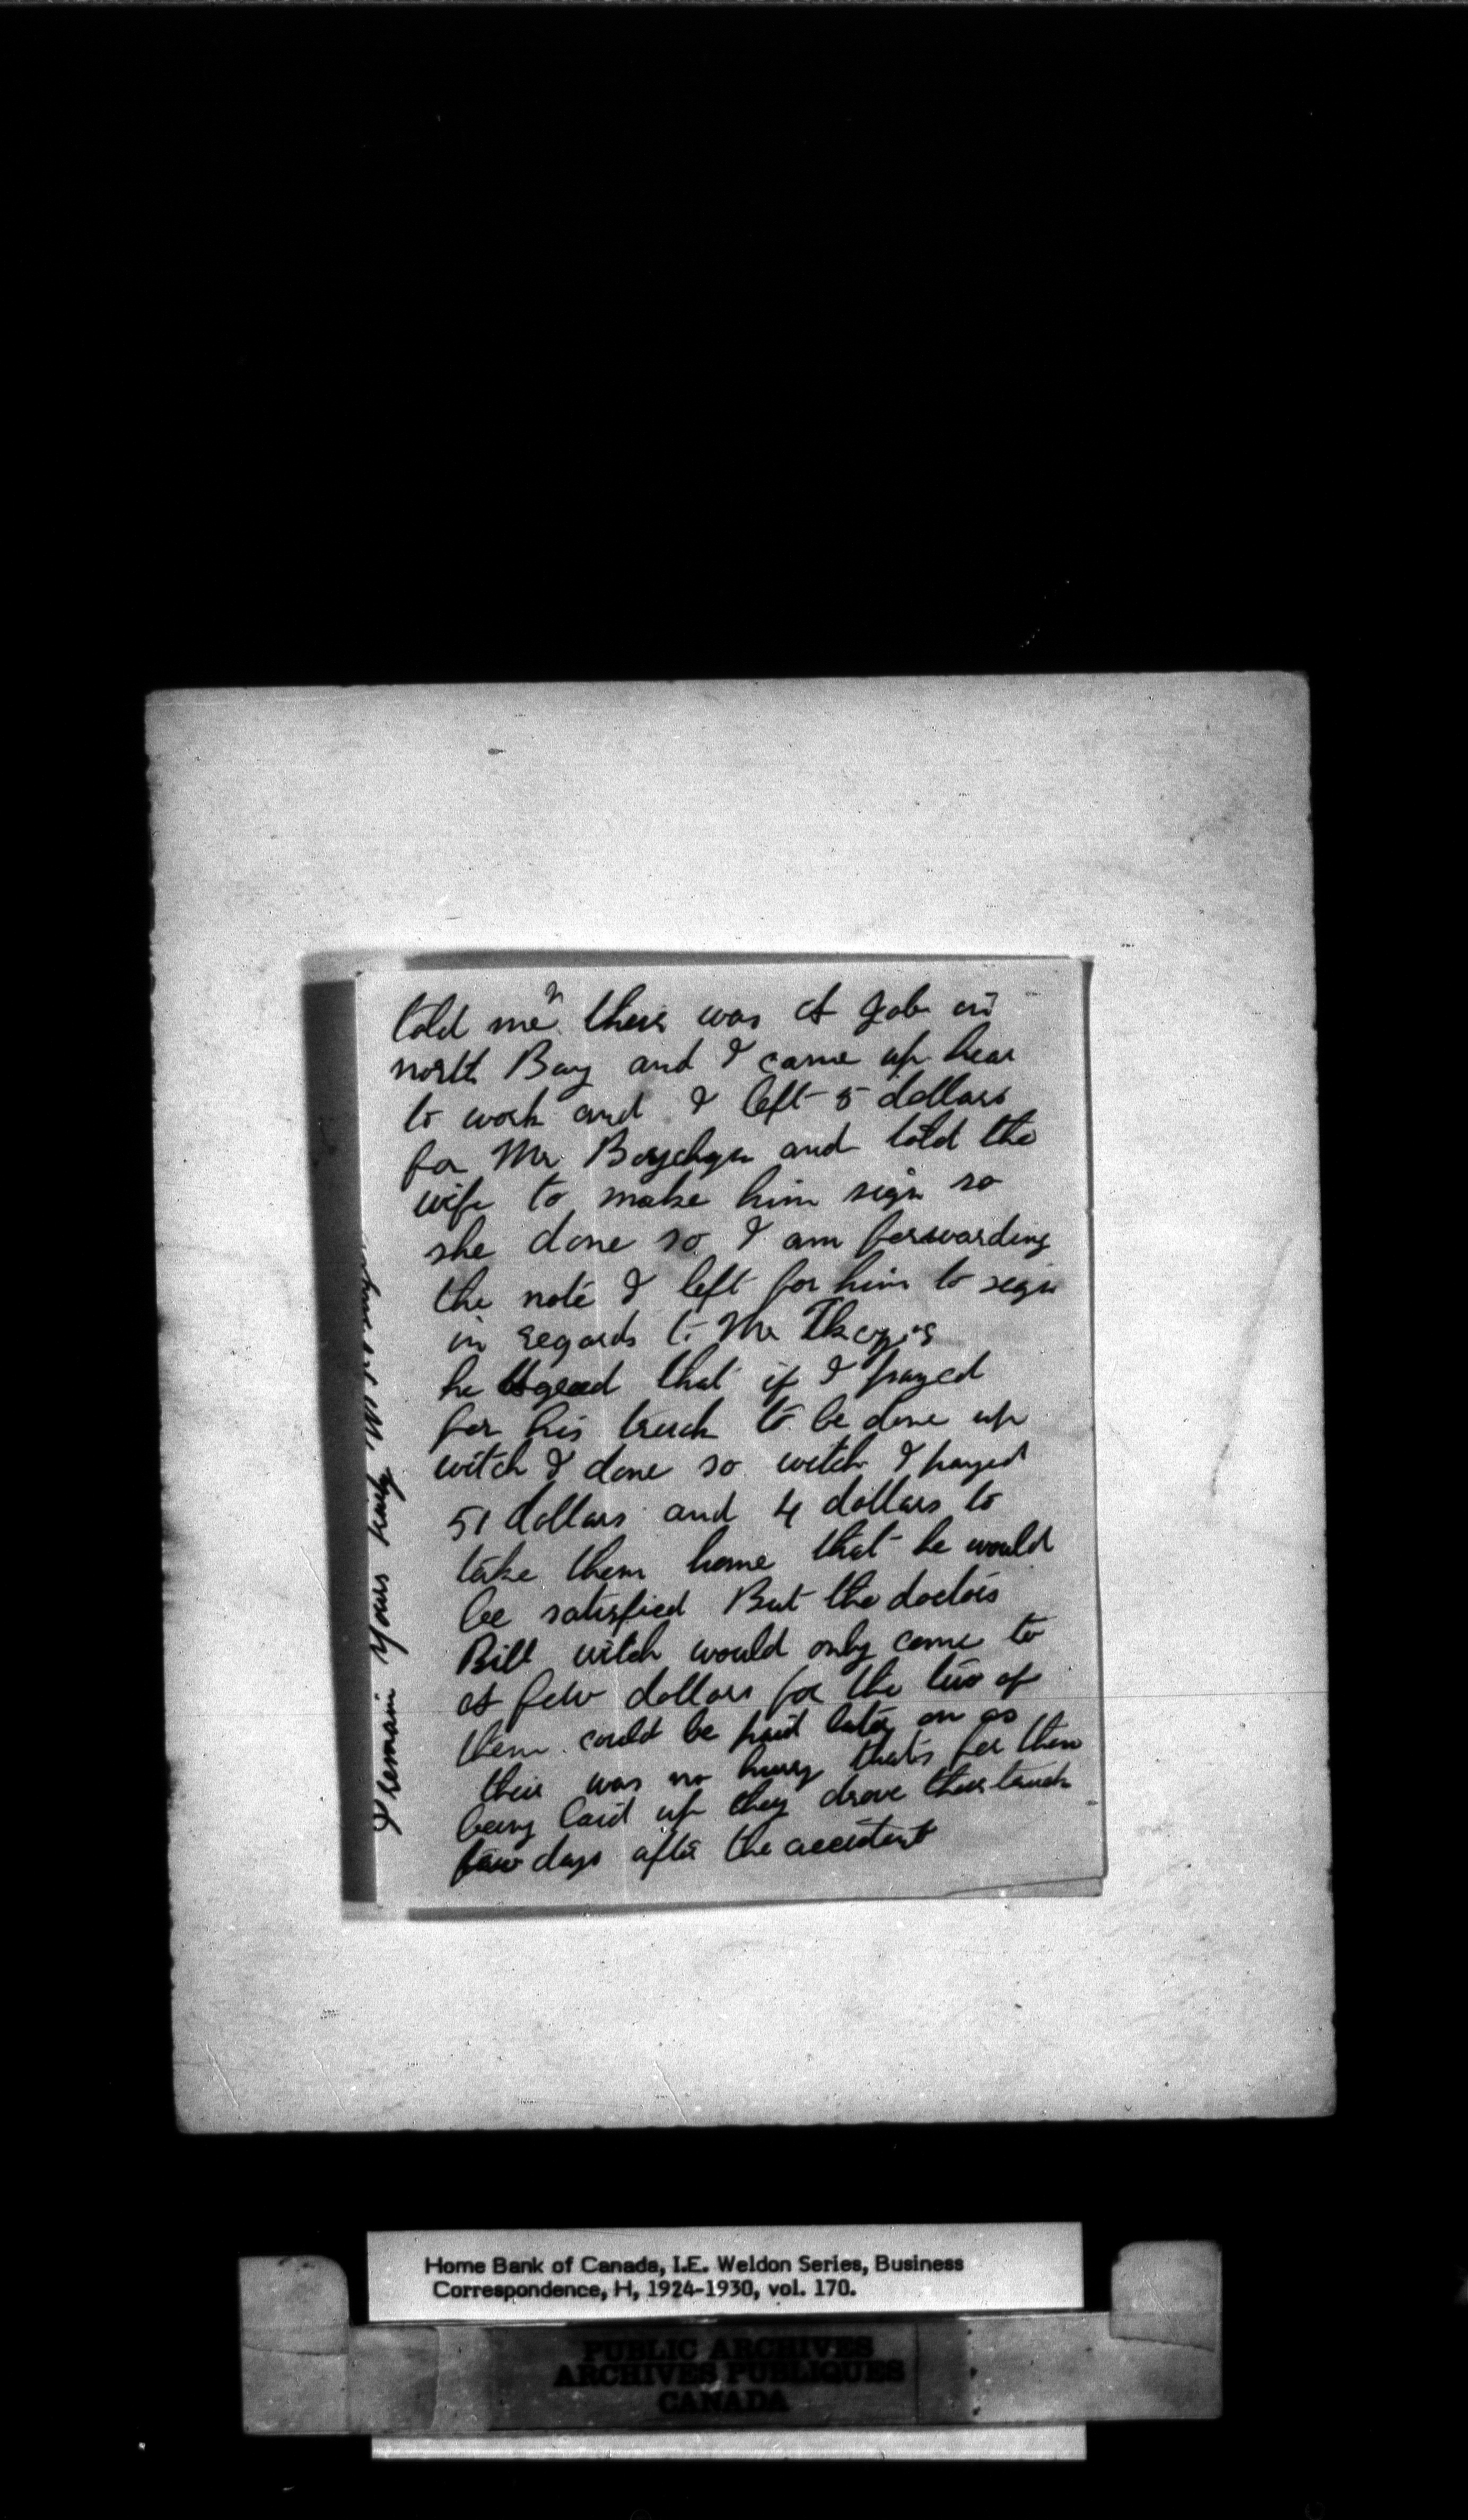 told me there was A Job in
north Bay and I came up hear
to work and I left 5 dollars
for Mr and told the
wife to make him sign so
she done so I am forwarding
the note I left for him to sign
in regards to Mr
he Agreed that if I payed
for his truck to be done up
witch I done so witch I payed
51 dollars and 4 dollars to
take them home that he would
be satisfied But the doctors
Bill witch would only come to
A few dollars for the two of
them could be paid later on as
their was no hurry thats for them
being laid up they drove their truck
few days after the accident
I remain Yours truly
Home Bank of Canada, I.E. Weldon Series, Business
Correspondence, H, 1924-1930, vol. 170.
PUBLIC ARCHIVES
ARCHIVES PUBLIQUES
CANADA